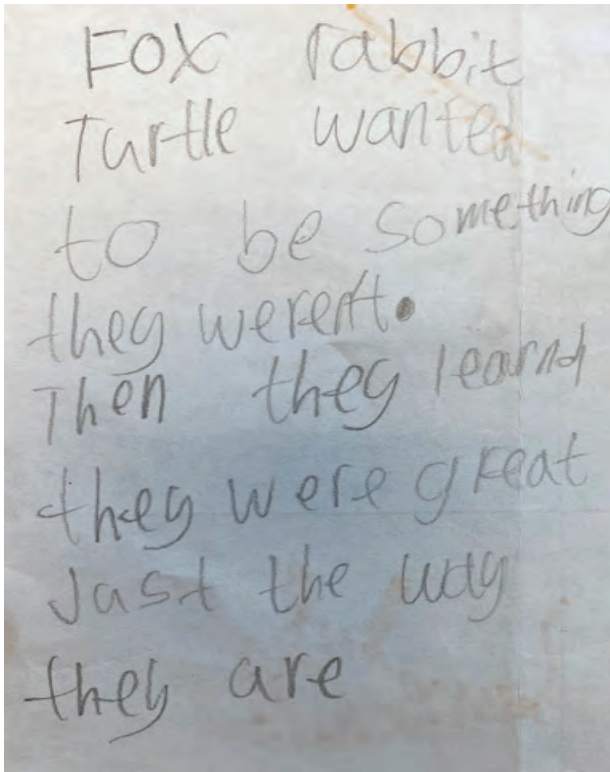 Fox rabbit
Turtle wanted
to be something
they weren't.
Then they learnd
they were great
Just the way
they are